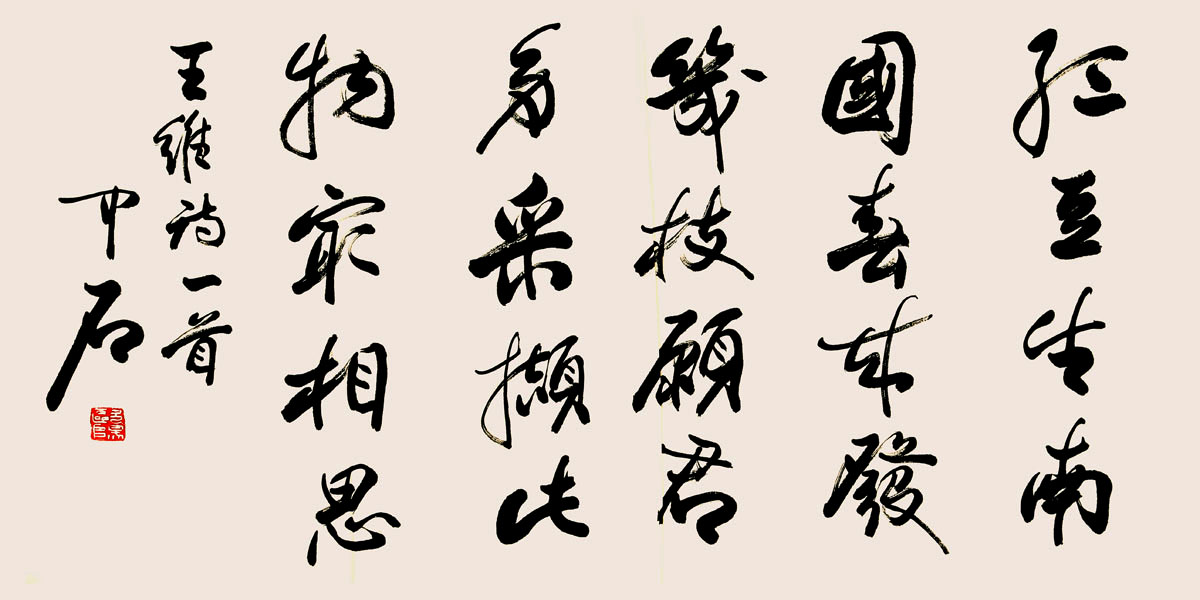 紅豆生南
國春來發
幾枝願君
多采擷此
物最相思
王維詩一首
中石